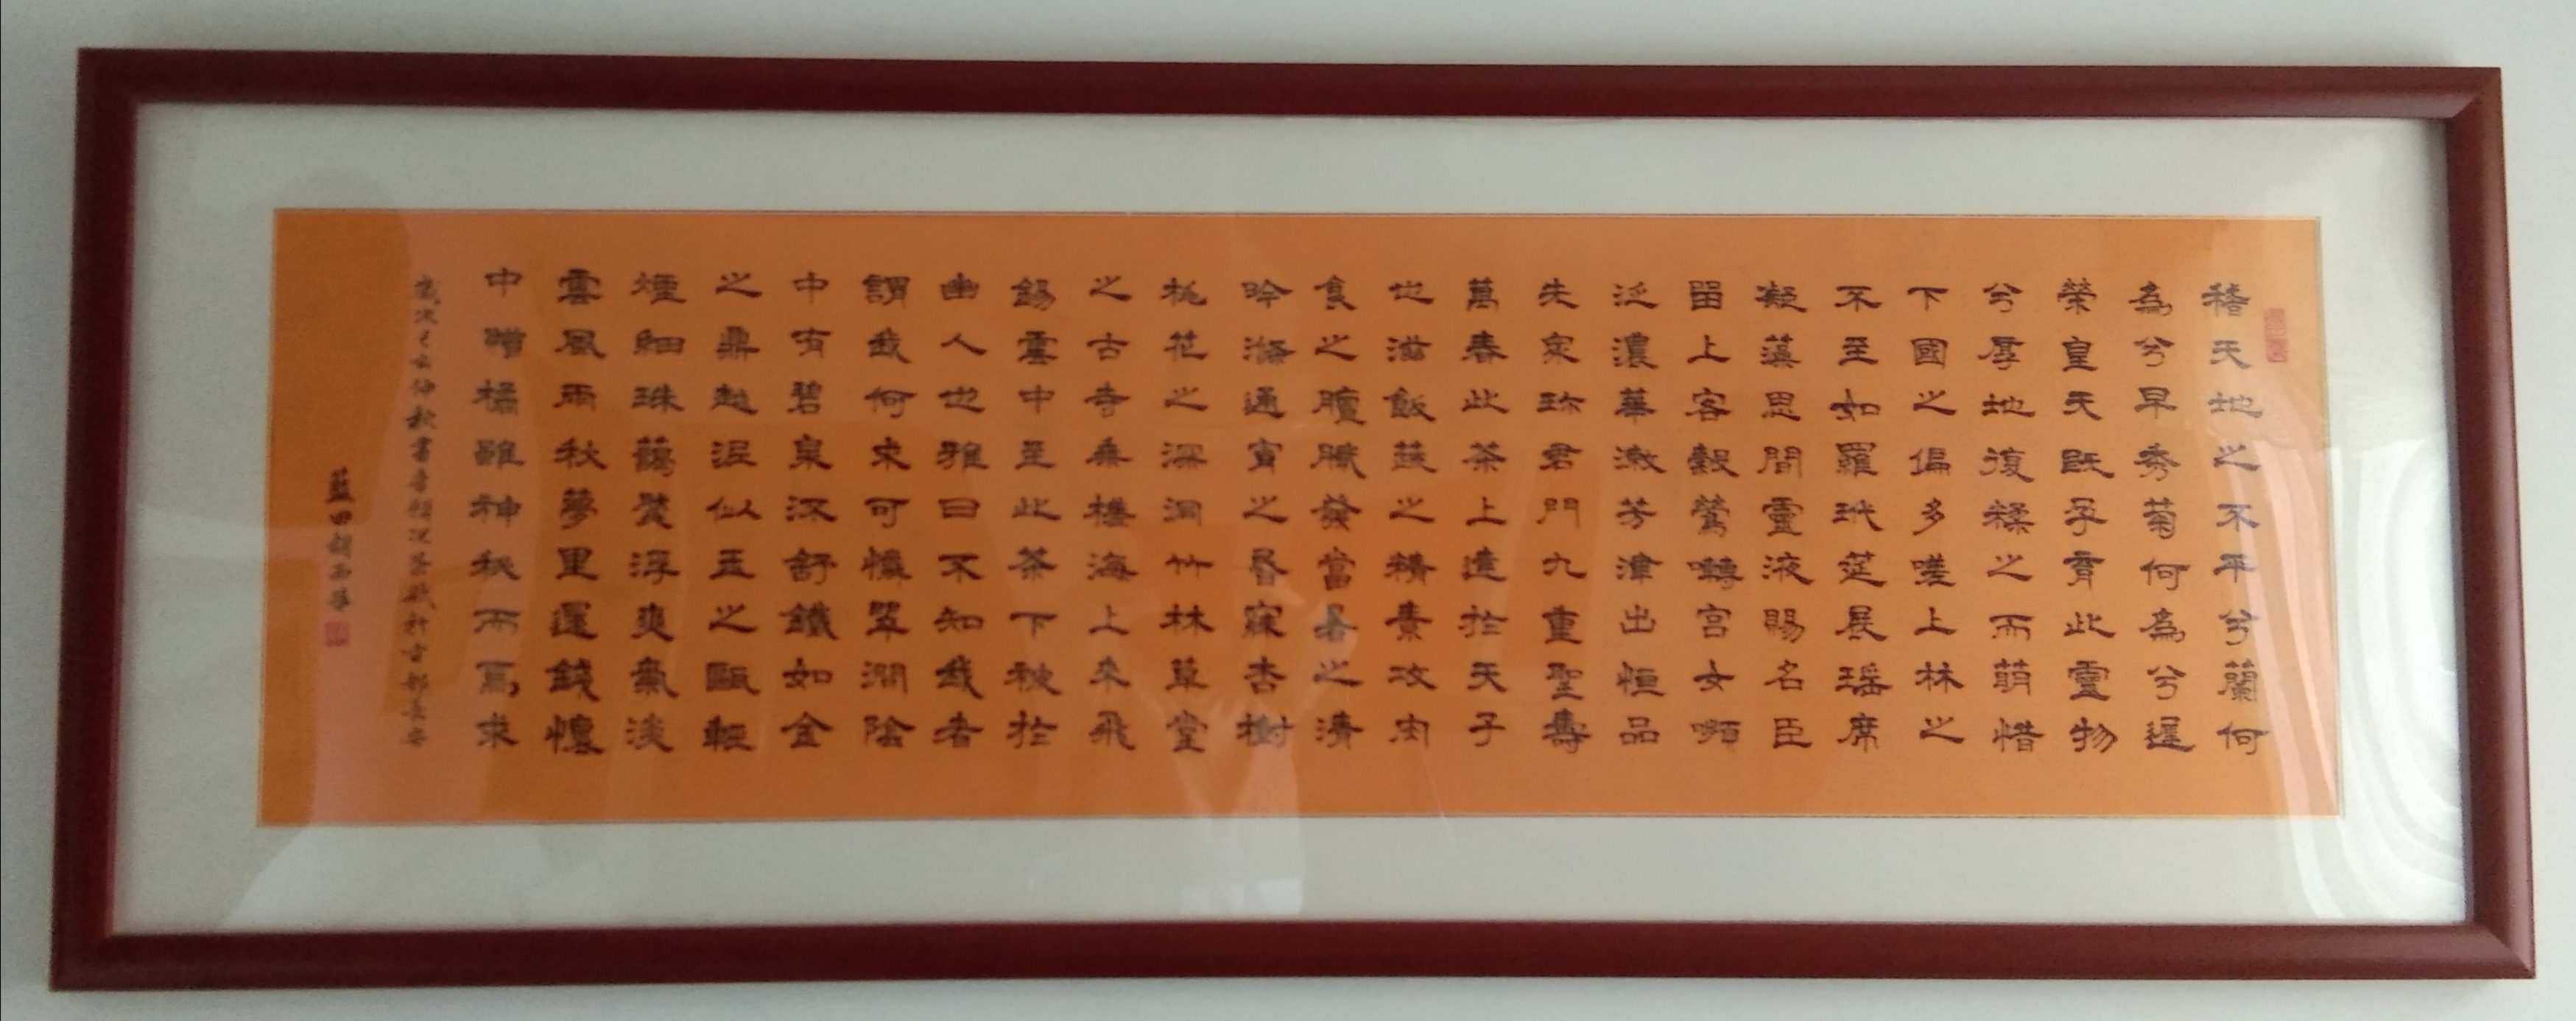 稽天地之不平兮蘭何
為兮早秀菊何為兮遲
榮皇天既孕育此靈物
兮厚地復糅之而萌惜
下國之偏多嗟上林之
不至如羅玳筵展瑤席
凝藻思間靈液賜名臣
留上客穀鶯囀宮女嚬
泛濃華漱芳津出恒品
先衆珍君門九重聖壽
萬春此茶上達於天子
也滋飯蔬之精素攻肉
食之膻膩發當暑之清
吟滌通宵之昏寐杏樹
桃花之深洞竹林草堂
之古寺乘槎海上來飛
錫雲中至此茶下被於
幽人也雅曰不知我者
謂我何求可憐翠澗陰
中有碧泉流舒鐵如金
之鼎越泥似玉之甌輕
煙細珠靄浮爽氣淡
雲風雨秋夢里還錢懷
中贈橘雖神秘而焉求
歲次己亥仲秋書唐顧況茶賦於古都長安
藍田胡西